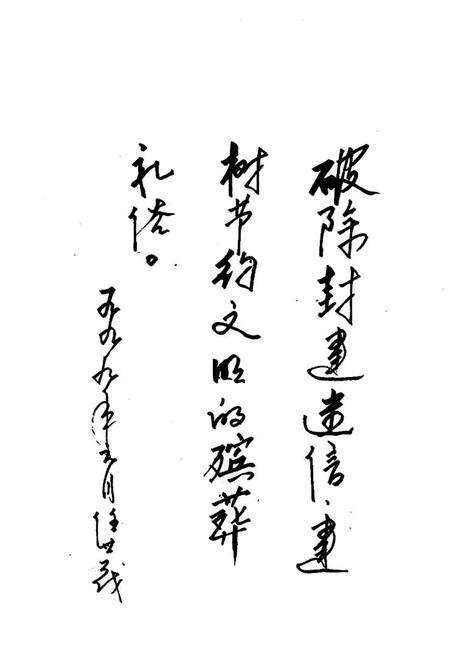 破除封建迷信、建
树节约文明的殡葬
礼俗。
一九九九年月任世